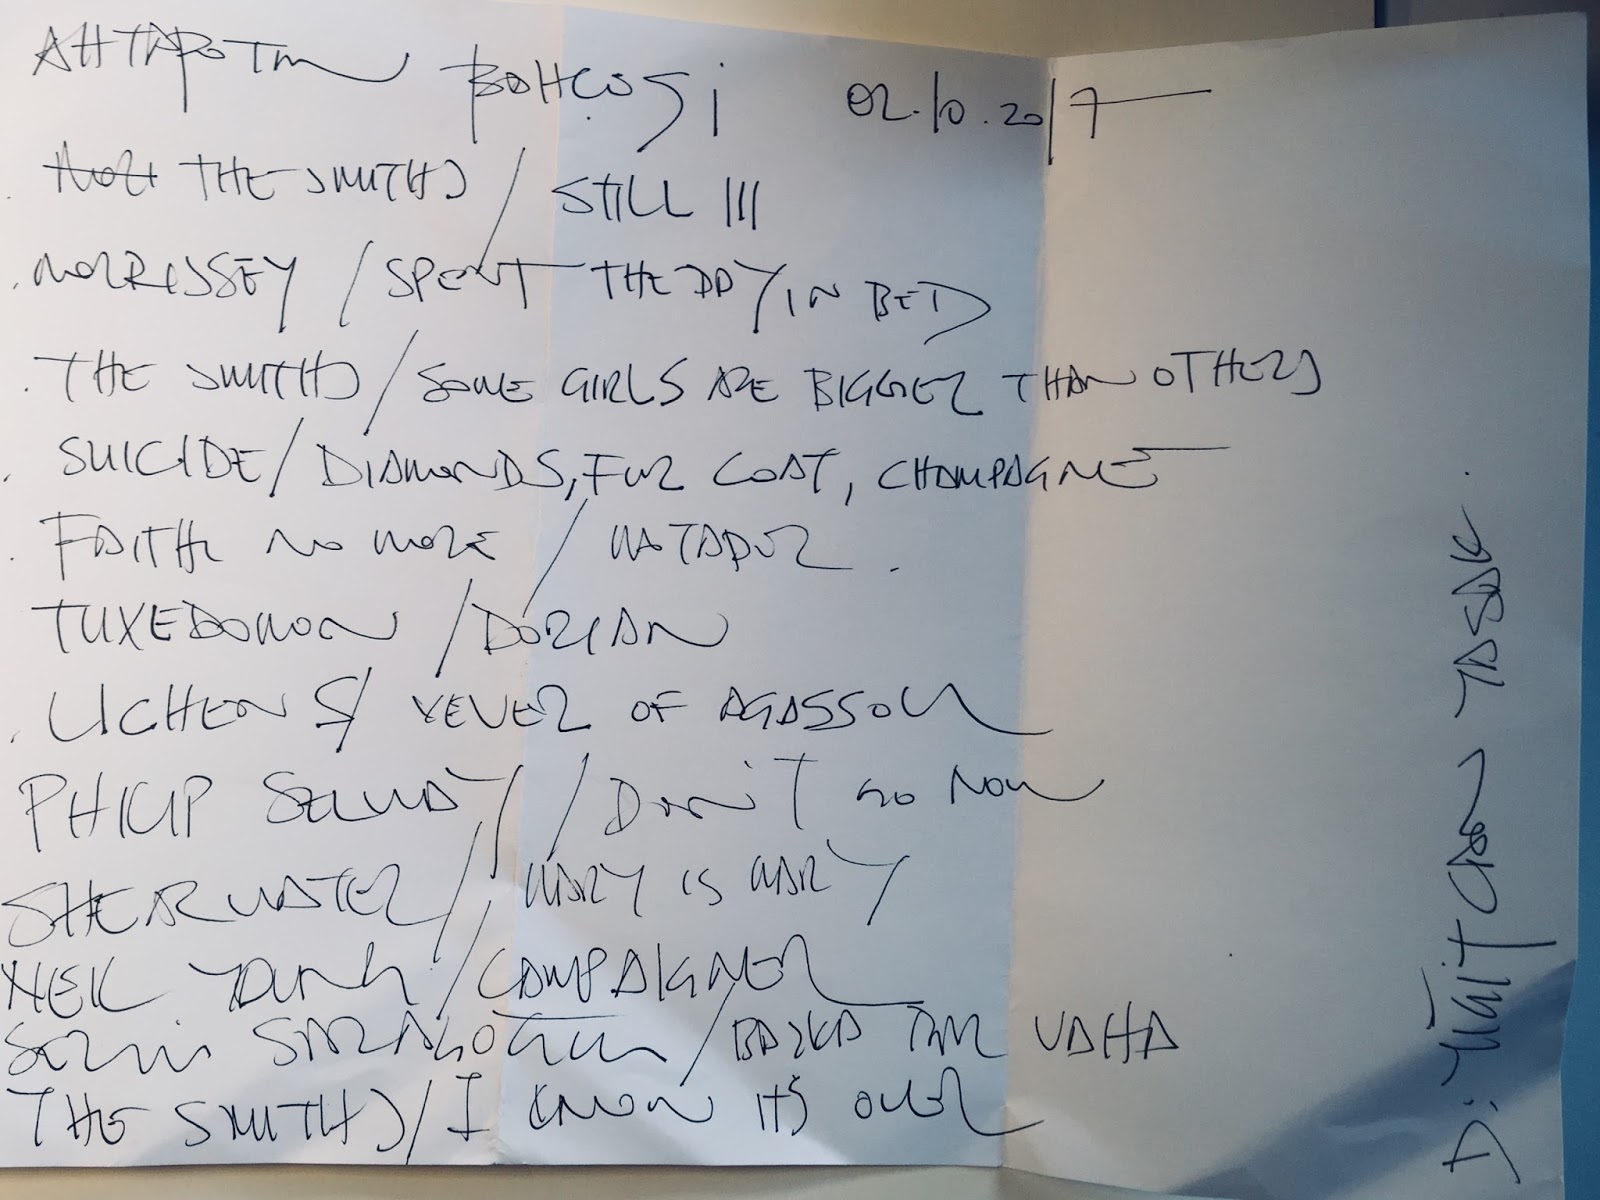 AHTAPOTUN BAHÇESİ 02.10.2017
THE SMITHS / STILL ILL
MORRISSEY / SPENT THE DAY IN BED
THE SMITHS / SOME GIRLS ARE BIGGER THAN OTHERS
SUICIDE / DIAMONDS, FUR COAT, CHAMPAGNE
FAITH NO MORE / MATADOR.
TUXEDOMOON / DORIAN
LICHENS / OF
PHILIP SELWAY / DON'T GO NOW
SHEARWATER / MARY IS MARY
NEIL YOUNG / CAMPAIGNER
/ BAŞKA VAHA
THE SMITHS / I KNOW IT'S OVER
D: YİĞİT CAN YASAK.